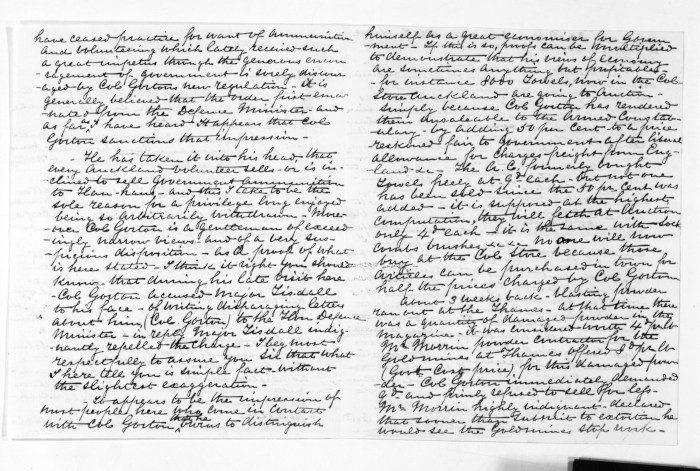 have ceased practice for want of ammunition
and volunteering which lately received such
a great impetus through the generous encou
-ragement of government is sorely discour
-aged by Col Gortons new regulation - it is
generally believed that the order first ema
-nated from the Defence Minister - and
as far as I have heard - it appears that Col
Gorton sanctions that impression -
- He has taken it into his head, that
every Auckland volunteer sells - or is in-
-clined to sell Government ammunition
to Hau-haus - and this I take to be the
sole reason for a privilege long enjoyed
being so arbitrarily withdrawn - More-
-over Col Gorton is a gentleman of exceed
-ingly narrow views - and of a very sus-
-picious disposition - as a proof of what
is here stated - I think it right you should
know - that during his late visit here
- Col Gorton accused Major Tisdall
to his face - of writing disparaging letters
about him (Col Gorton) to the Hon Defence
Minister - in reply Major Tisdall indig-
-nantly repelled the charge - I beg most
respectfully to assure you Sir that what
I here tell you is simple fact - without
the slightest exaggeration -
- It appears to be the impression of
most people here who come in contact
with Col Gorton, that he burns to distinguish
himself as a great economiser for Govern
-ment - If this is so, proofs can be multiplied
to demonstrate that his views of economy
are sometimes anything but profitable -
for instance 8400 Towels, now in the Col
Store Auckland - are going to Auction
simply because Col Gorton has rendered
them unsaleable to the Armed Constab-
-ulary - by adding 50 per cent to a price
reckoned fair to Government after those
allowance for charges - freight from Eng-
-land &c - The A.C. formerly bought
Towels freely at 9d each - But not one
has been sold since the 50 per cent was
added - it is supposed at the highest
computation, they will fetch at Auction
only 4d each - it is the same with
combs brushes &c &c - no one will now
buy at the Col Store because those
articles can be purchased in town for
half the prices charged by Col Gorton
about 3 weeks back - blasting powder
ran out at the Thames - at that time there
was a quantity of damaged powder in the
magazine - it was considered worth 4d per lb
Mr Morrin powder contractor for the
Goldmines at Thames offered 8d per lb
(Govt Cost price), for this damaged pow-
-der - Col Gorton immediately demanded
9d - and firmly refused to sell for less
Mr Morrin highly indignant - declared
that sooner than submit to extortion he
would see the Goldmines stop work -